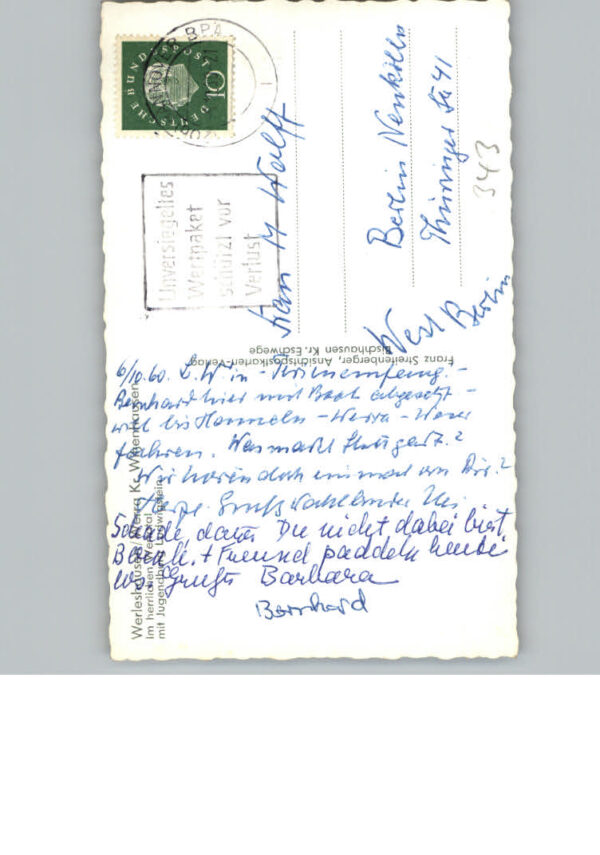 DEUTSCHE BUNDESPOST
10
BPA
Unversiegeltes
Wertpaket
schützt vor
Verlust
Frau M Wolff
Berlin Neukölln
Thüringer Str 41
West Berlin
343
Franz Streifenberger, Ansichtspostkarten-Verlag
Bischhausen Kr. Eschwege
Werleshausen/Werra Kr. Witzenhausen
Im herrlichen Werratal
mit Jugendburg Ludwigstein
6/10.60.
Bernhard hier mit Boot abgesetzt -
will bis Hameln - Werra - Weser
fahren. Was macht Stuttgart?
Wir hören doch einmal von Dir?
Herzl. Gruß
Schade, dass Du nicht dabei bist,
Bernh. + Freund paddeln heute
los. Gruß Barbara
Bernhard